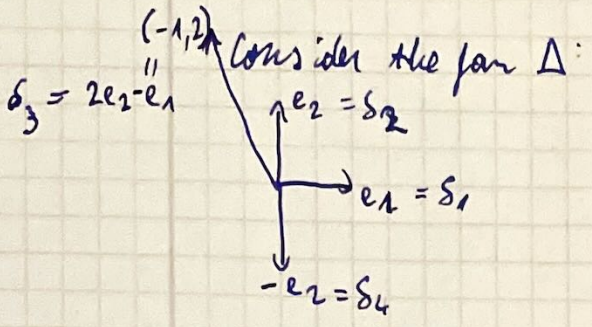 (-1,2) Consider the fan Δ:
||
δ₃ = 2e₂-e₁
e₂ = δ₂
e₁ = δ₁
-e₂ = δ₄